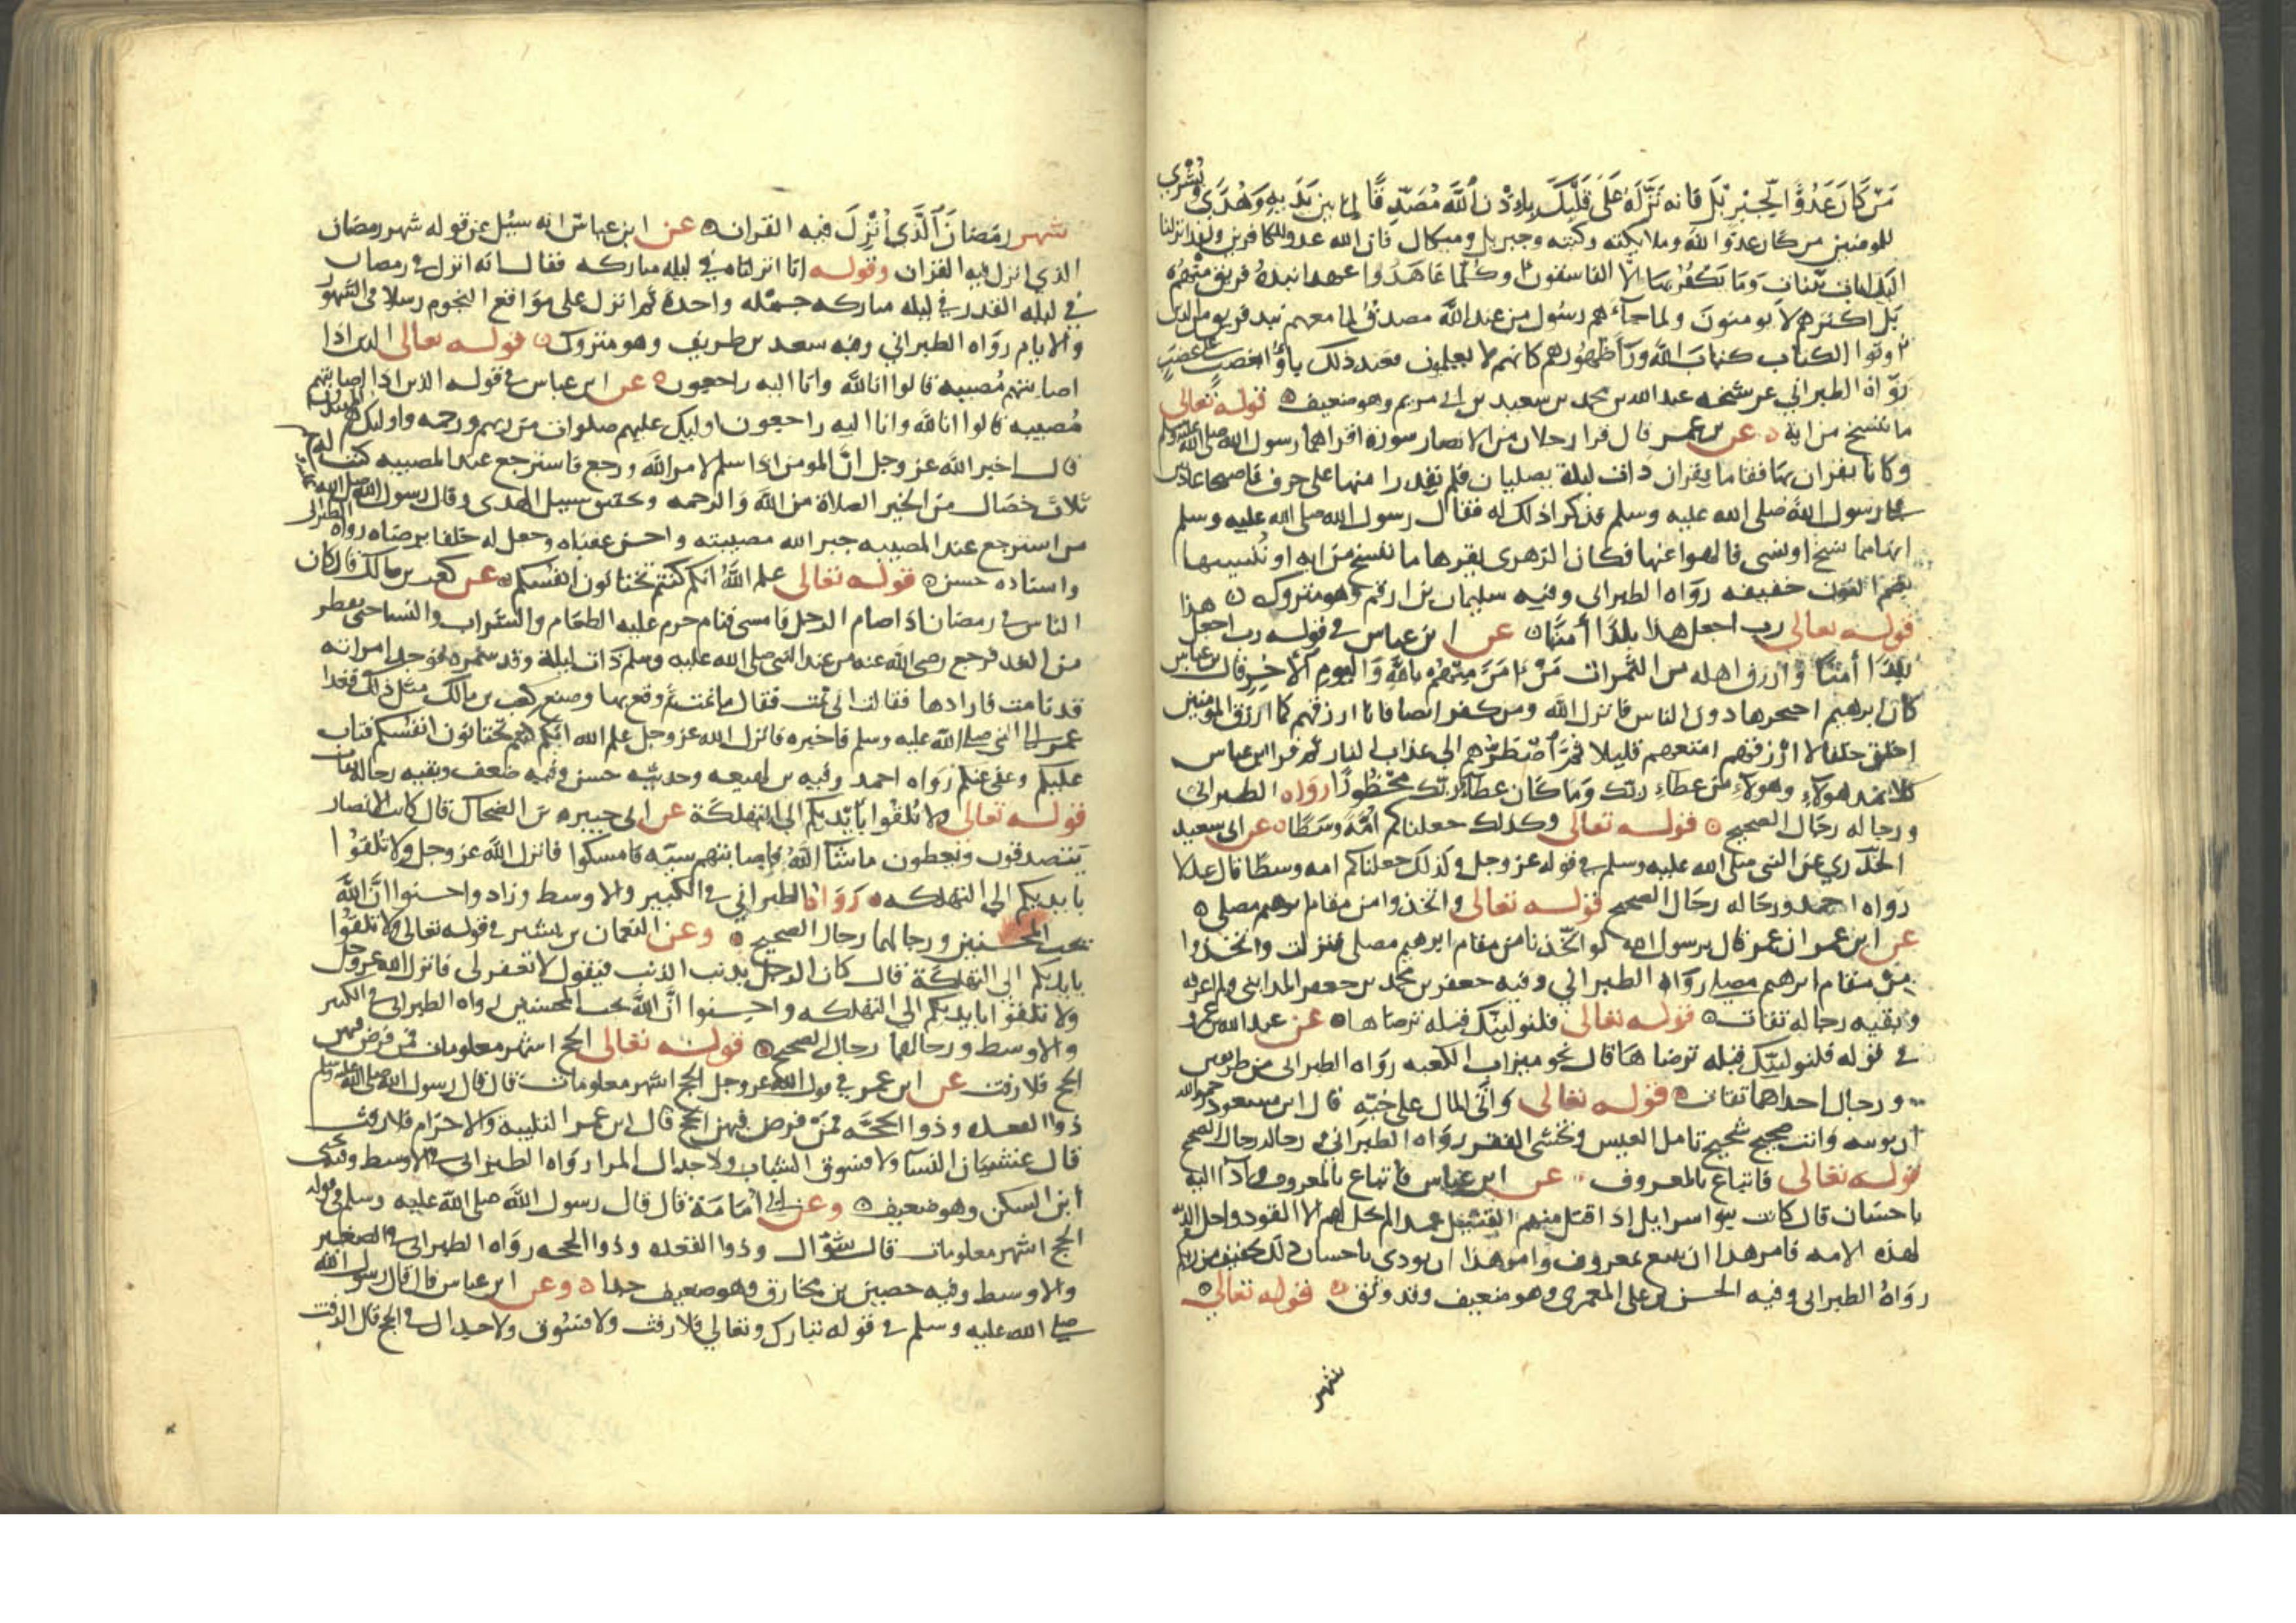 مَنْ كَانَ عَدُوًّا لِجِبْرِيلَ فَانه نَزَّلَهُ عَلَى قَلْبِكَ بِاِذْنِ اللَّه مُصَدِّقًا لما بين يَدَيهِ وَهُدًى وَبُشْرَى
للمومنين من كان عدوا لله وملايكته وكتبه وجبريل وميكال فان الله عدو للكافرين ولقد انزلنا
اليك ايات بينات وَمَا يَكْفُر بها الا الفاسقون وكلما عَاهَدُوا عهدا نبذهُ فريق مِنْهُم
بَل اكثرهم لا يومنون ولما جآءهم رسُول من عند اللَّه مصدق لما معهم نبذ فريق من الذين
اوتوا الكتاب كتابَ اللَّه ورآ ظهورهم كانهم لا يعلمون فعند ذلك باؤا بغضب على غضب
رَوَاه الطبراني عن شيخه عبد الله بن محمد بن سعيد بن ابى مريم وهو ضعيف قوله تعالى
ما ننسخ من اية عن بن عمر قال قرا رجلان من الانصار سورة اقراهما رسول الله صلى الله عليه وسلم
وكانا يقران بها فقاما يقران ذات ليلة يصليان فلم يقدرا منها على حرف فاصبحا غاديين
على رسول اللَّه صلى الله عليه وسلم فذكرا ذلك له فقال رسول الله صلى الله عليه وسلم
انها مما نسخ او نسى فالهوا عنها فكان الزهرى يقرها ما ننسخ من ايه او نُنسيها
بضم النون خفيفه رواه الطبرانى وفيه سليمان بن ارقم وهو متروك
قوله تعالى رب اجعل هذا بلَدًا أمنًا عن ابن عباس في قوله رب اجعل هذا
بلَدًا أمنًا وارزق اهله من الثمرات مَنْ امَنَ مِنْهُم بالله وَاليوم الاخِرِ قال بن عباس
كان ابرهيم احتجرها دون الناس فانزل اللَّه ومن كفر ايضا فانا ارزقهم كما ارزق المومنين
اخلق خلقا لا ارزقهم امتعهم قليلا ثُمَّ أضْطَرُّهم الى عذاب النار ثم قرا ابن عباس
كلا نمد هولاء وهولاء من عطاء ربك وَمَا كَان عطآء ربك محظُورًا رواه الطبرانى
ورجاله رجال الصحيح قوله تعالى وكذلك جعلناكم امَّة وَسَطًا عن ابى سعيد
الخدري عن النبى صلى الله عليه وسلم في قوله عز وجل وكذلك جعلناكم امه وسطا قال عدلا
رواه احمد ورجاله رجال الصحيح قوله تعالى واتخذوا من مقام ابرهيم مصلى
عن ابن عمر ان عمر قال يرسول الله لو اتخذنا من مقام ابرهيم مصلى فنزلت واتخذوا
من مقام ابرهيم مصلى رواه الطبراني وفيه جعفر بن محمد بن جعفر المداينى ولم اعرفه
وبقيه رجاله ثقات قوله تعالى فلنولينك قبله ترضاها عن عبد الله بن عمرو
في قوله فلنولينك قبله ترضاها قال نحو ميزاب الكعبه رواه الطبرانى من طريقين
ورجال احداهما ثقات قوله تعالى وَاتَى المال على حُبِّه قال ابن مسعود رحمه الله
ان يوتيه وانت صحيح شحيح تامل العيش وتخشى الفقر رواه الطبراني ورجاله رجال الصحيح
قوله تعالى فاتباع بالمعروف عن ابن عباس فاتباع بالمعروف وادآ اليه
باحسَان قال كانت بنو اسرايل اذا قتل منهم القتيل عمدا لم يحل لهم الا القود واحل الديه
لهذه الامه فامر هذا ان يتبع بمعروف وامر هذا ان يودى باحسان ذلك تخفيف من ربكم
رَوَاهُ الطبرانى وفيه الحسن بن على المعمرى وهو ضعيف وقد وثق قوله تعالى
شهر
شهر رمَضَانَ الَّذى أُنْزِلَ فيه القران عن ابن عباس انه سُيل عن قوله شهر رمضان
الذي انزل فيه القران وقوله انا انزلناه في ليله مباركه فقال انه انزل في رمضان
في ليله القدر في ليله مباركه جمله واحدة ثم انزل على مواقع النجوم رسلا فى الشهور
والايام روَاه الطبراني وفيه سعد بن طريف وهو متروك قوله تعالى الذين اذا
اصابتهم مُصيبه قالوا انا للَّه وانا اليه راجعون عن ابن عباس في قوله الذين اذا اصابتهم
مُصيبه قالوا انا لله وانا اليه راجعون اوليك عليهم صلوات من ربهم ورحمه واوليك هم المهتدون
قال اخبر اللَّه عز وجل انَّ المومن اذا سلم لامر اللَّه ورجع فاسترجع عند المصيبه كتب له
ثلاث خصَال من الخير الصلاة من اللَّه وَالرحمه وتحقيق سبيل الهدى وقال رسول الله صلى الله عليه وسلم
من استرجع عند المصيبه جبر الله مصيبته واحسن عقباه وجعل له خلفا يرضاه رواه الطبرانى
واسناده حسن قوله تعالى علم اللَّهُ انكم كنتم تختانون انفُسكم عن كعب بن مالك قال كان
الناس في رمضان اذا صام الرجل فامسى فنام حرم عليه الطعَام والشراب والنسا حتى يفطر
من الغد فرجع رضى اللَّه عنه من عند النبى صلى الله عليه وسلم ذات ليلة وقد سمر عنده فوجد امراته
قد نامت فارادها فقالت انى نمت فقال ما نمت ثم وقع بها وصنع كعب بن مالك مثل ذلك فغدا
عمر الى النبى صلى اللَّه عليه وسلم فاخبره فانزل الله عز وجل علم الله انكم كنتم تختانون انفُسكم فتاب
عليكم وعفى عنكم رواه احمد وفيه بن لهيعه وحديثه حسن وفيه ضعف وبقيه رجاله ثقات
قوله تعالى ولا تُلقُوا بايديكم الى التهلكَة عن ابى جبيره بن الضحاك قال كانت الانصار
يتصدقون ويعطون ما شآ اللَّهُ فاصابتهم سنه فامسكوا فانزل اللَّه عز وجل ولا تلقُوا
بايديكم الى التهلكه رَوَاه الطبراني في الكبير والاوسط وزاد واحسنوا انَّ اللَّه
يحب المحسنين ورجالهما رجال الصحيح وعن النعمان بن بشير في قوله تعالى ولا تلقُوا
بايديكم الى التهلكَة قال كان الرجل يذنب الذنب فيقول لا يغفر لى فانزل الله عز وجل
ولا تلقوا بايديكم الى التهلكه واحسِنوا انَّ اللَّه يحب المحسنين رواه الطبرانى في الكبير
والاوسط ورجالهما رجال الصحيح قوله تعالى الحج اشهر معلومات فمن فرض فيهن
الحج فلا رفث عن ابن عمر في قول الله عز وجل الحج اشهر معلومات قال قال رسول الله صلى الله عليه وسلم
ذوا القعده وذوا الحجه فمن فرض فيهن الحج قال ابن عمر التلبية والاحرَام فلا رفث
قال غشيَان النسآ ولا فسوق السباب ولا جدال المرا رواه الطبرانى في الاوسط وفيه يحيى
ابن السكن وهو ضعيف وعن ابى أمَامَة قال قال رسول اللَّه صلى اللَّه عليه وسلم في قوله
الحج اشهر معلومات قال شوّال وذوا القعده وذوا الحجه رواه الطبرانى في الصغير
والاوسط وفيه حصين بن مخارق وهو ضعيف جدا وعن ابن عباس قال قال رسول الله
صلى الله عليه وسلم في قوله تبارك وتعالي فلا رفث ولا فسُوق ولا جدال في الحج قال الرفث